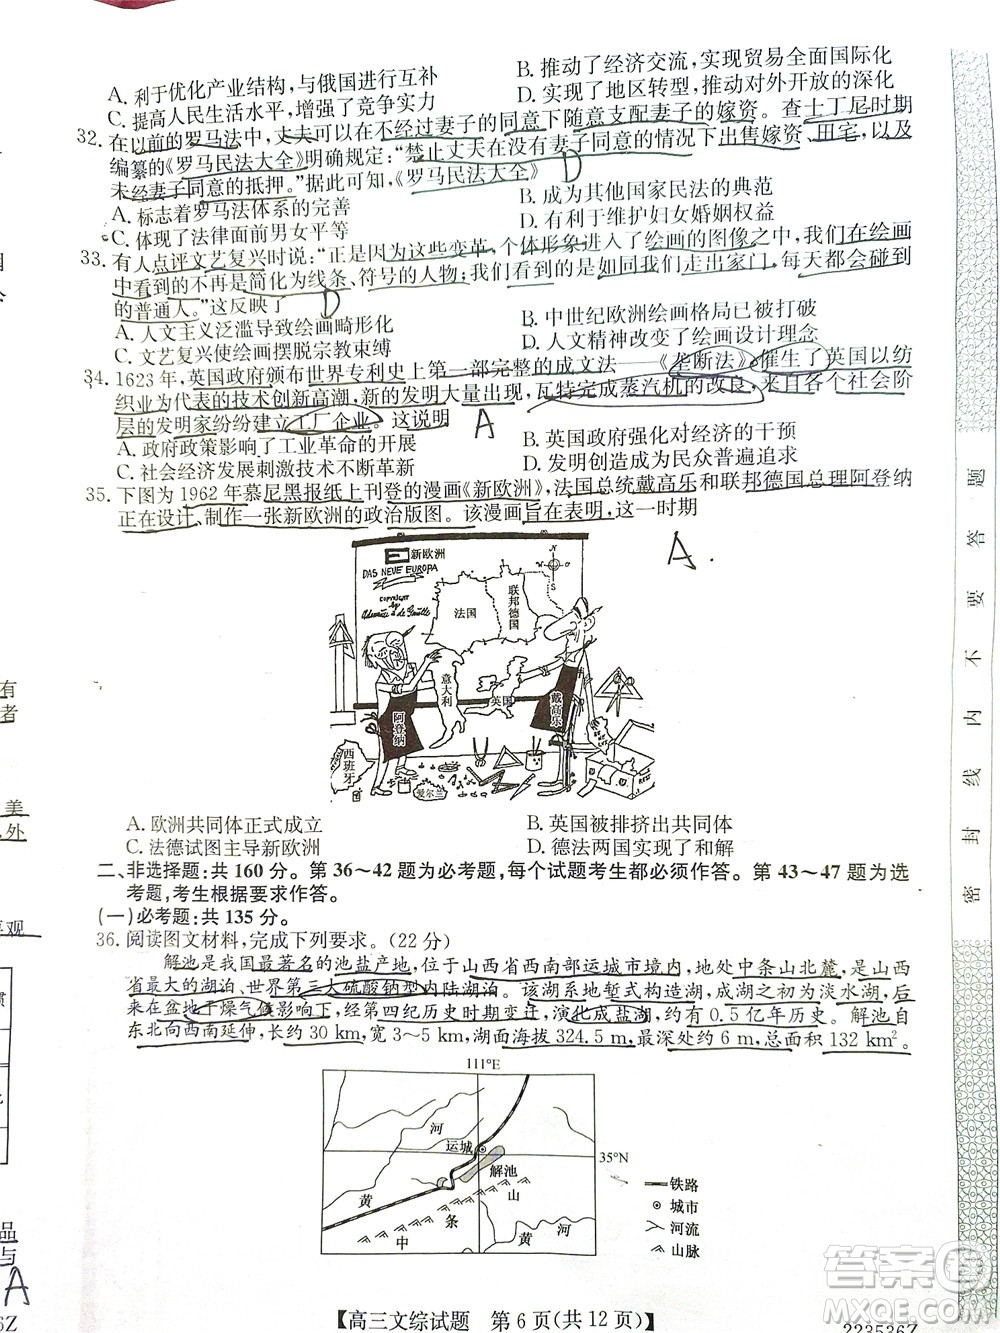 A. 利于优化产业结构，与俄国进行互补
B. 推动了经济交流，实现贸易全面国际化
C. 提高人民生活水平，增强综合国力
D. 实现了地区转型，推动对外开放的深化
32. 在以前的罗马法中，丈夫可以在不经过妻子的同意下随意支配妻子的嫁资。查士丁尼时期
编纂的《罗马民法大全》明确规定：“禁止丈夫在没有妻子同意的情况下出售嫁资、田宅，以及
未经妻子同意的抵押。”据此可知，《罗马民法大全》
D
A. 标志着罗马法体系的完善
B. 成为其他国家民法的典范
C. 体现了法律面前男女平等
D. 有利于维护妇女婚姻权益
33. 有人点评文艺复兴时说：“正是因为这些变革，个体形象进入了绘画的图像之中，我们在绘画
中看到的不再是简化为线条、符号的人物；我们看到的是如同我们走出家门，每天都会碰到
的普通人。”这反映了
D
A. 人文主义泛滥导致绘画畸形化
B. 中世纪欧洲绘画格局已被打破
C. 文艺复兴使绘画摆脱宗教束缚
D. 人文精神改变了绘画设计理念
34. 1623年，英国政府颁布世界专利史上第一部完整的成文法——《垄断法》，催生了英国以纺
织业为代表的技术创新高潮，新的发明大量出现，瓦特完成蒸汽机的改良，来自各个社会阶
层的发明家纷纷建立工厂企业。这说明
A
A. 政府政策影响了工业革命的开展
B. 英国政府强化对经济的干预
C. 社会经济发展刺激技术不断革新
D. 发明创造成为民众普遍追求
35. 下图为1962年慕尼黑报纸上刊登的漫画《新欧洲》，法国总统戴高乐和联邦德国总理阿登纳
正在设计、制作一张新欧洲的政治版图。该漫画旨在表明，这一时期
A.
E 新欧洲
DAS NEUE EUROPA
COPYRIGHT
by
Adenauer & de Gaulle
N
S
法国
联邦德国
意大利
英国
阿登纳
戴高乐
西班牙
爱尔兰
A. 欧洲共同体正式成立
B. 英国被排挤出共同体
C. 法德试图主导新欧洲
D. 德法两国实现了和解
二、非选择题：共160分。第36～42题为必考题，每个试题考生都必须作答。第43～47题为选
考题，考生根据要求作答。
(一)必考题：共135分。
36. 阅读图文材料，完成下列要求。(22分)
解池是我国最著名的池盐产地，位于山西省西南部运城市境内，地处中条山北麓，是山西
省最大的湖泊、世界第三大硫酸钠型内陆湖泊。该湖系地堑式构造湖，成湖之初为淡水湖，
在盆地干燥气候影响下，经第四纪历史时期变迁，演化成盐湖，约有0.5亿年历史。解池自
东北向西南延伸，长约30 km，宽3～5 km，湖面海拔324.5 m，最深处约6 m，总面积132 km²。
111°E
35°N
河
运城
解池
黄
山
条
中
黄
河
铁路
城市
河流
山脉
【高三文综试题 第6页(共12页)】
223536Z
密 封 线 内 不 要 答 题
有
者
美
外
观
品
与
A
6Z
答案圈
MXQE.COM